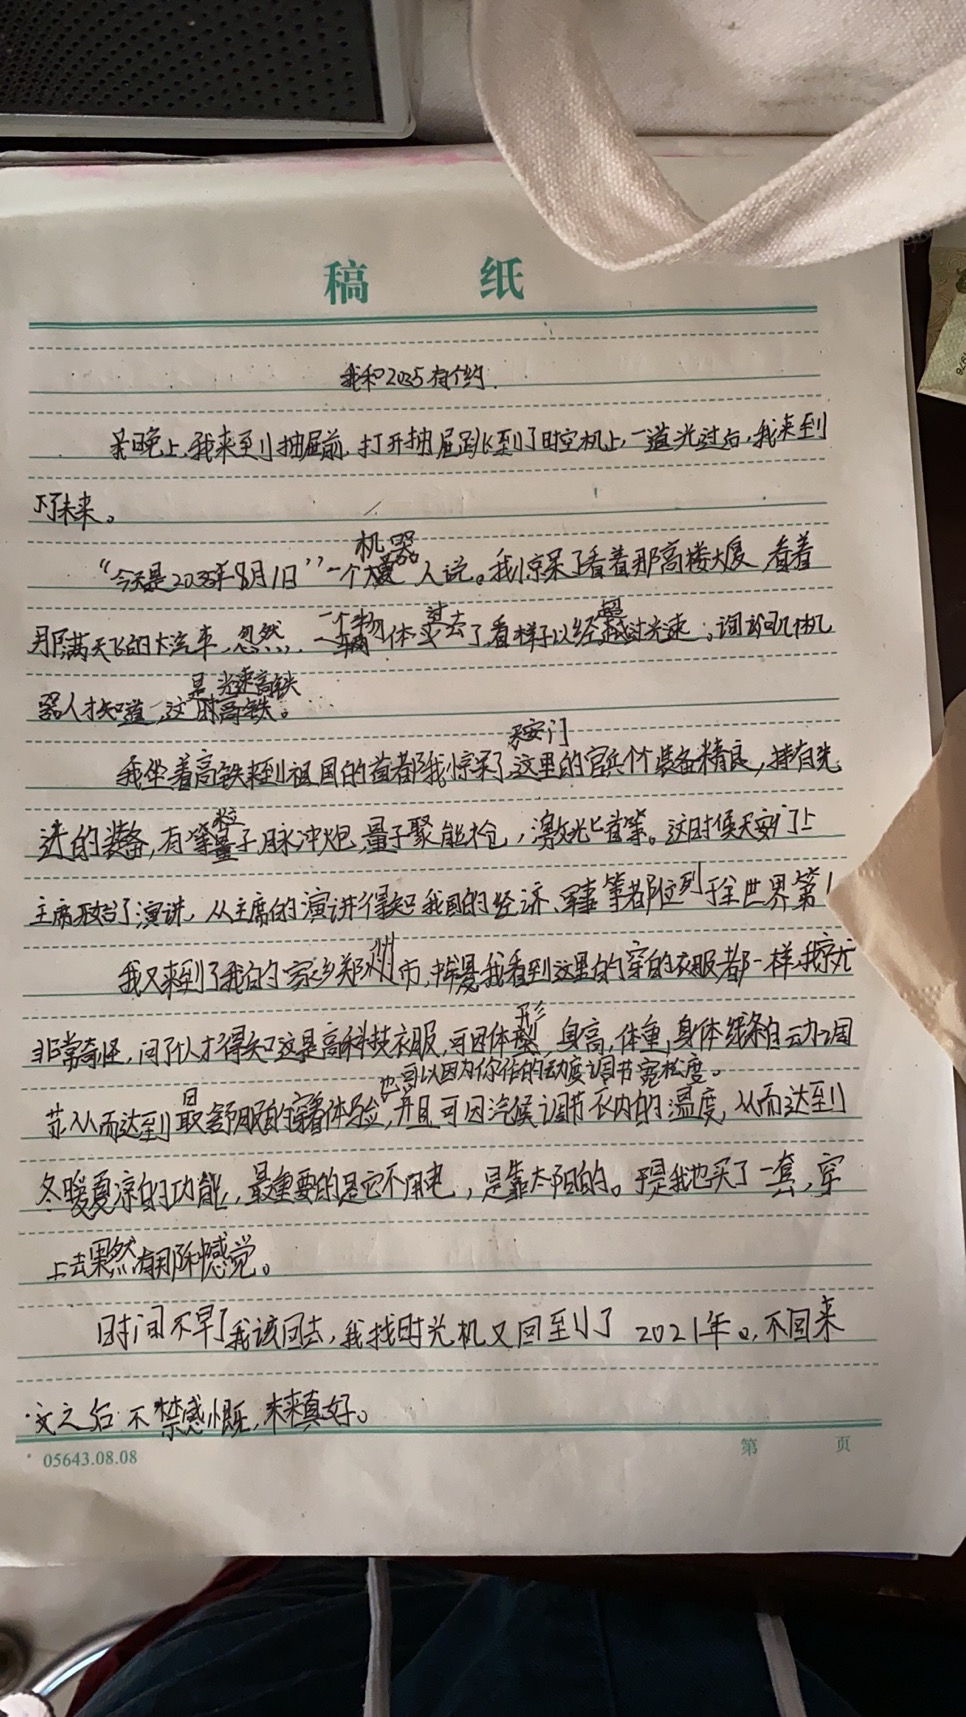 稿 纸
我和2035有个约.
某晚上,我来到抽屉前,打开抽屉跳到了时空机上,一道光过后,我来到
了未来。
“今天是2035年8月1日”一个机器人说。我惊呆了看着那高楼大厦,看着
那满天飞的汽车,忽然,一个物体过去了,看样子以经超过光速,询问机
器人才知道,这是光速高铁。
我坐着高铁来到祖国的首都天安门我惊呆了,这里的官兵个个装备精良,拥有先
进的装备,有粒子脉冲炮,量子聚能枪,激光匕首等。这时候天安门上
主席开始了演讲,从主席的演讲得知我国的经济、军事等都位列于全世界第1
我又来到了我的家乡郑州市,我看到这里的穿的衣服都一样,我
非常奇怪,问了人才得知这是高科技衣服,可因体形,身高,体重,身体线条自动调
节从而达到最舒服的穿着体验,也可以因为你作的动度调节宽松度。并且可因汽候调节衣内的温度,从而达到
冬暖夏凉的功能,最重要的是它不用电,是靠太阳的。于是我也买了一套,穿
上去果然有那种感觉。
时间不早了我该回去,我找时光机又回到了 2021年。,不回来
之后 不禁感慨,未来真好。
05643.08.08
第 页